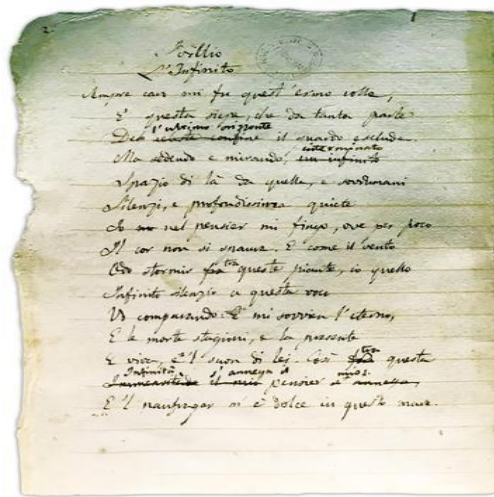 2.
Idillio
L'Infinito
Sempre caro mi fu quest'ermo colle,
E questa siepe, che da tanta parte
Del celeste confine l'ultimo orizzonte il guardo esclude.
Ma sedendo e mirando, un infinito interminato
Spazio di là da quella, e sovrumani
Silenzi, e profondissima quiete
Io nel pensier mi fingo, ove per poco
Il cor non si spaura. E come il vento
Odo stormir tra queste piante, io quello
Infinito silenzio a questa voce
Vo comparando: E mi sovvien l'eterno,
E le morte stagioni, e la presente
E viva, e 'l suon di lei. Così tra questa
Immensitade Infinità il mio s'annega il pensier s'annega mio:
E 'l naufragar m'è dolce in questo mare.